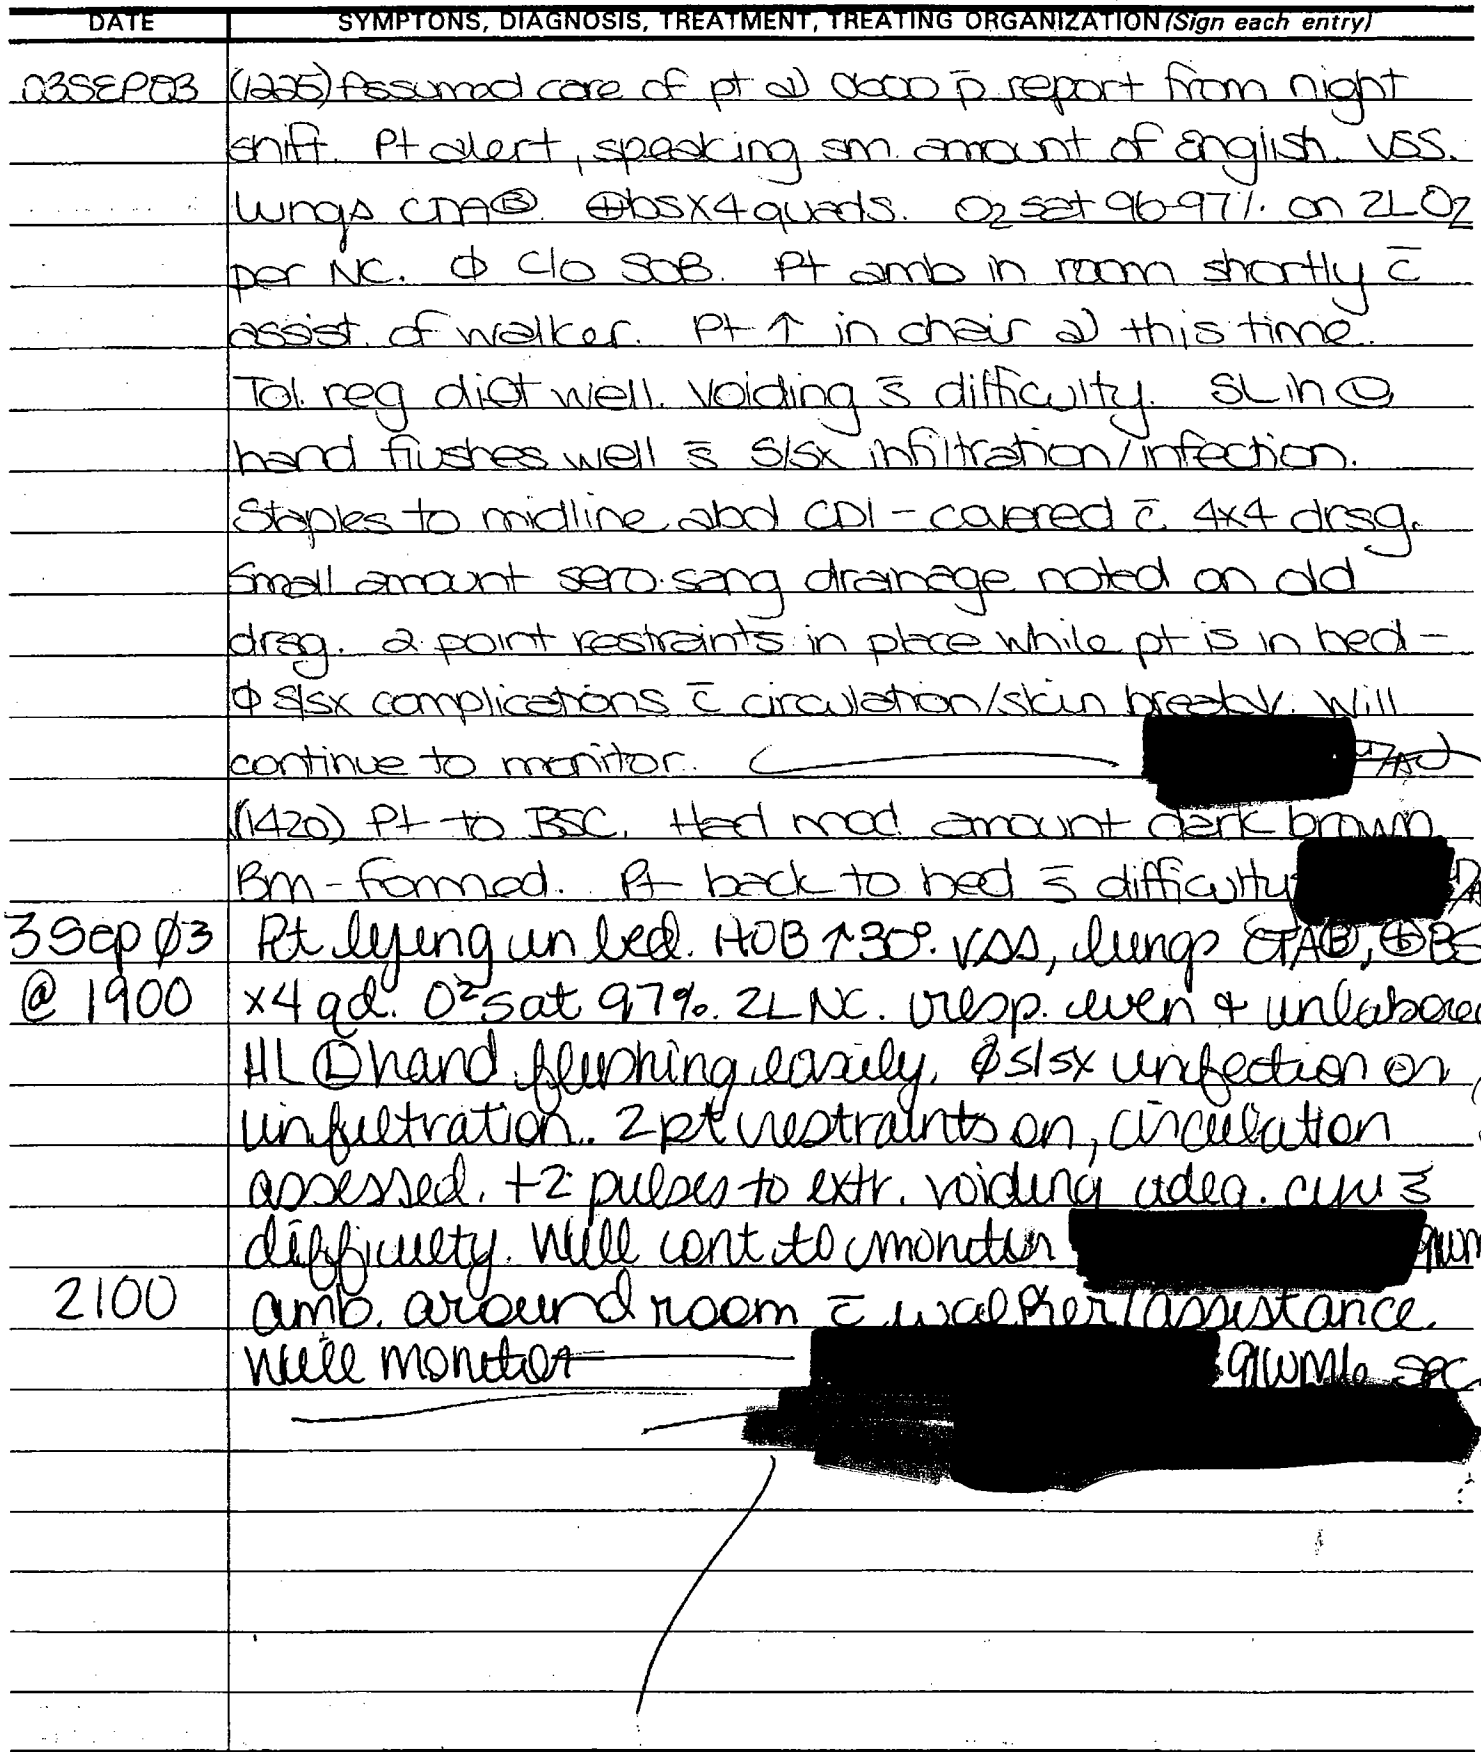 DATE SYMPTONS, DIAGNOSIS, TREATMENT, TREATING ORGANIZATION (Sign each entry)
03SEP03 (1225) Assumed care of pt @ p̄ report from night
shift. Pt alert, speaking sm. amount of English. VSS.
Lungs CTA Ⓑ. ⊕bs x 4 quads. O2 sat 96-97% on 2L O2
per NC. Φ c/o SOB. Pt amb in room shortly c̄
assist. of walker. Pt ↑ in chair @ this time.
Tol. reg diet well. Voiding s̄ difficulty. SL in Ⓛ
hand flushes well s̄ s/sx infiltration/infection.
Staples to midline abd CDI - covered c̄ 4x4 drsg.
Small amount sero-sang drainage noted on old
drsg. 2 point restraints in place while pt is in bed -
Φ s/sx complications c̄ circulation/skin Will
continue to monitor.
(1420) Pt to BSC. Had mod amount dark brown
Bm - formed. Pt back to bed s̄ difficulty
3 Sep Ø3 Pt lying in bed. HOB ↑ 30°. VSS, lungs CTA Ⓑ, ⊕ BS
@ 1900 x4 qd. O² sat 97%. 2L NC. resp. even + unlabored
HL Ⓛ hand flushing easily. Ø s/sx infection or
infiltration. 2 pt restraints on, circulation
assessed. +2 pulses to extr. voiding adeq. s̄
difficulty. Will cont to monitor
2100 amb. around room c̄ walker/assistance.
Will monitor 91WM6 SPC